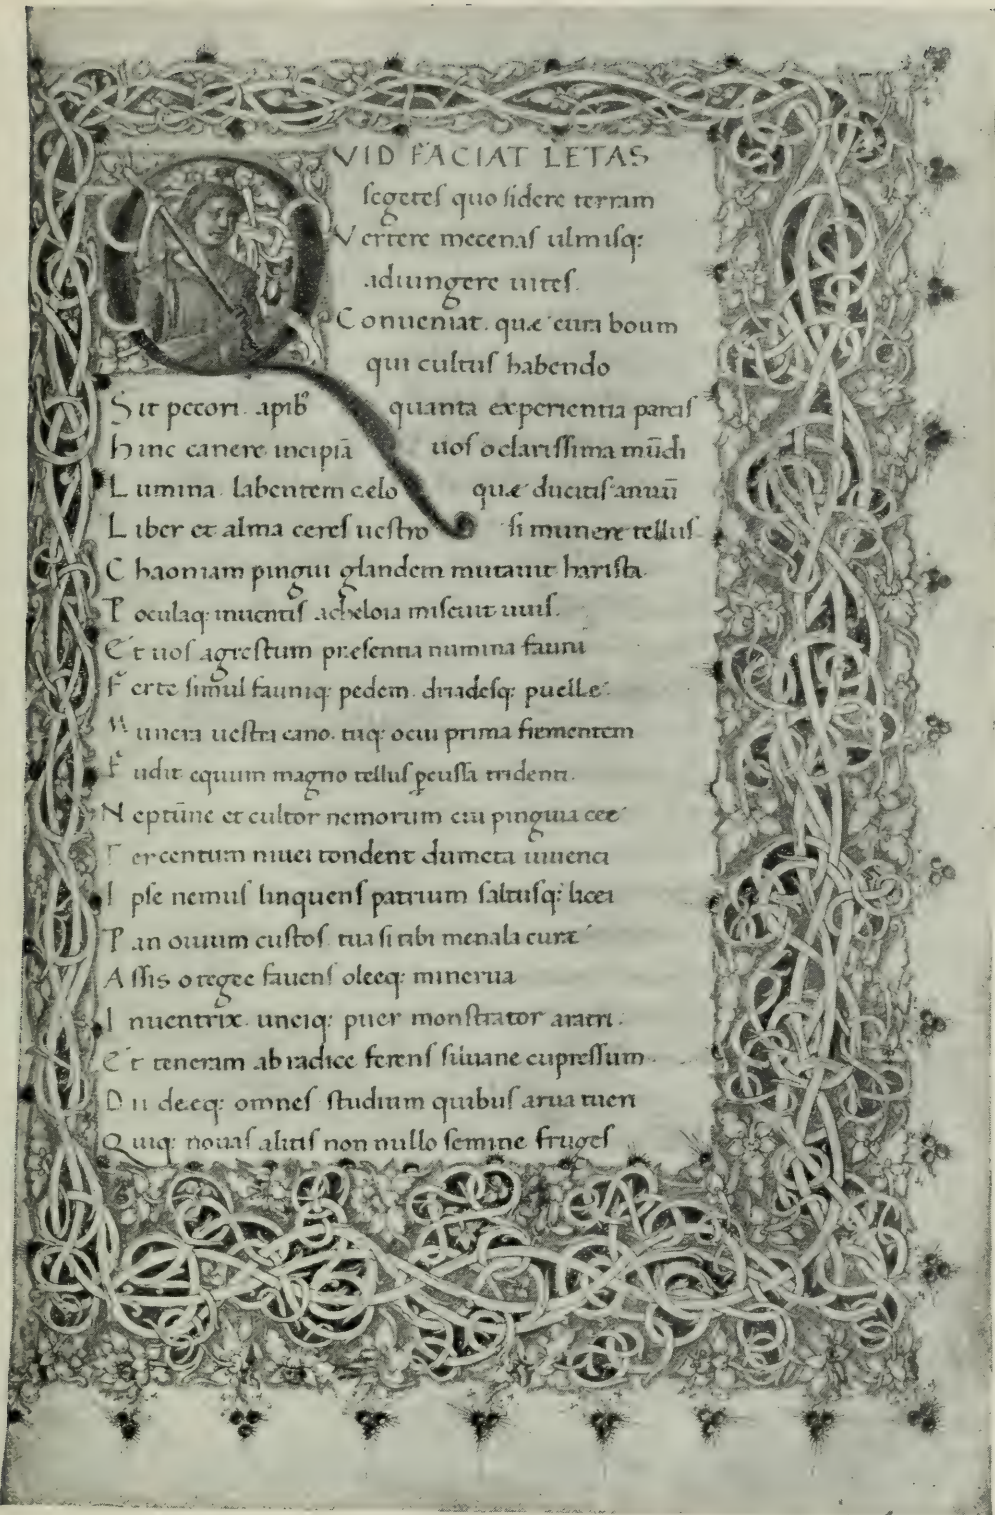 QVID FACIAT LETAS
segetes quo sidere terram
Vertere mecenas ulmisq:
adiungere uites.
Conueniat. quæ cura boum
qui cultus habendo
Sit pecori. apibꝰ quanta experientia parcis
Hinc canere incipiā uos o clarissima mūdi
Lumina. labentem celo quæ ducitis annū
Liber et alma ceres uestro si munere tellus
Chaoniam pingui glandem mutauit harista.
Poculaq: inuentis acheloia miscuit uuis.
Et uos agrestum presentia numina fauni
Ferte simul fauniq: pedem. driadesq: puelle.
Munera uestra cano. tuq: o cui prima frementem
Fudit equum magno tellus ꝑcussa tridenti.
Neptūne et cultor nemorum cui pinguia cee
Tercentum niuei tondent dumeta iuuenci
Ipse nemus linquens patrium saltusq: licei
Pan ouium custos tua si tibi menala curæ
Assis o tegee fauens oleeq: minerua
Inuentrix. unciq: puer monstrator aratri.
Et teneram ab radice ferens siluane cupressum.
Dii deeq: omnes studium quibus arua tueri
Quiq: nouas alitis non nullo semine fruges